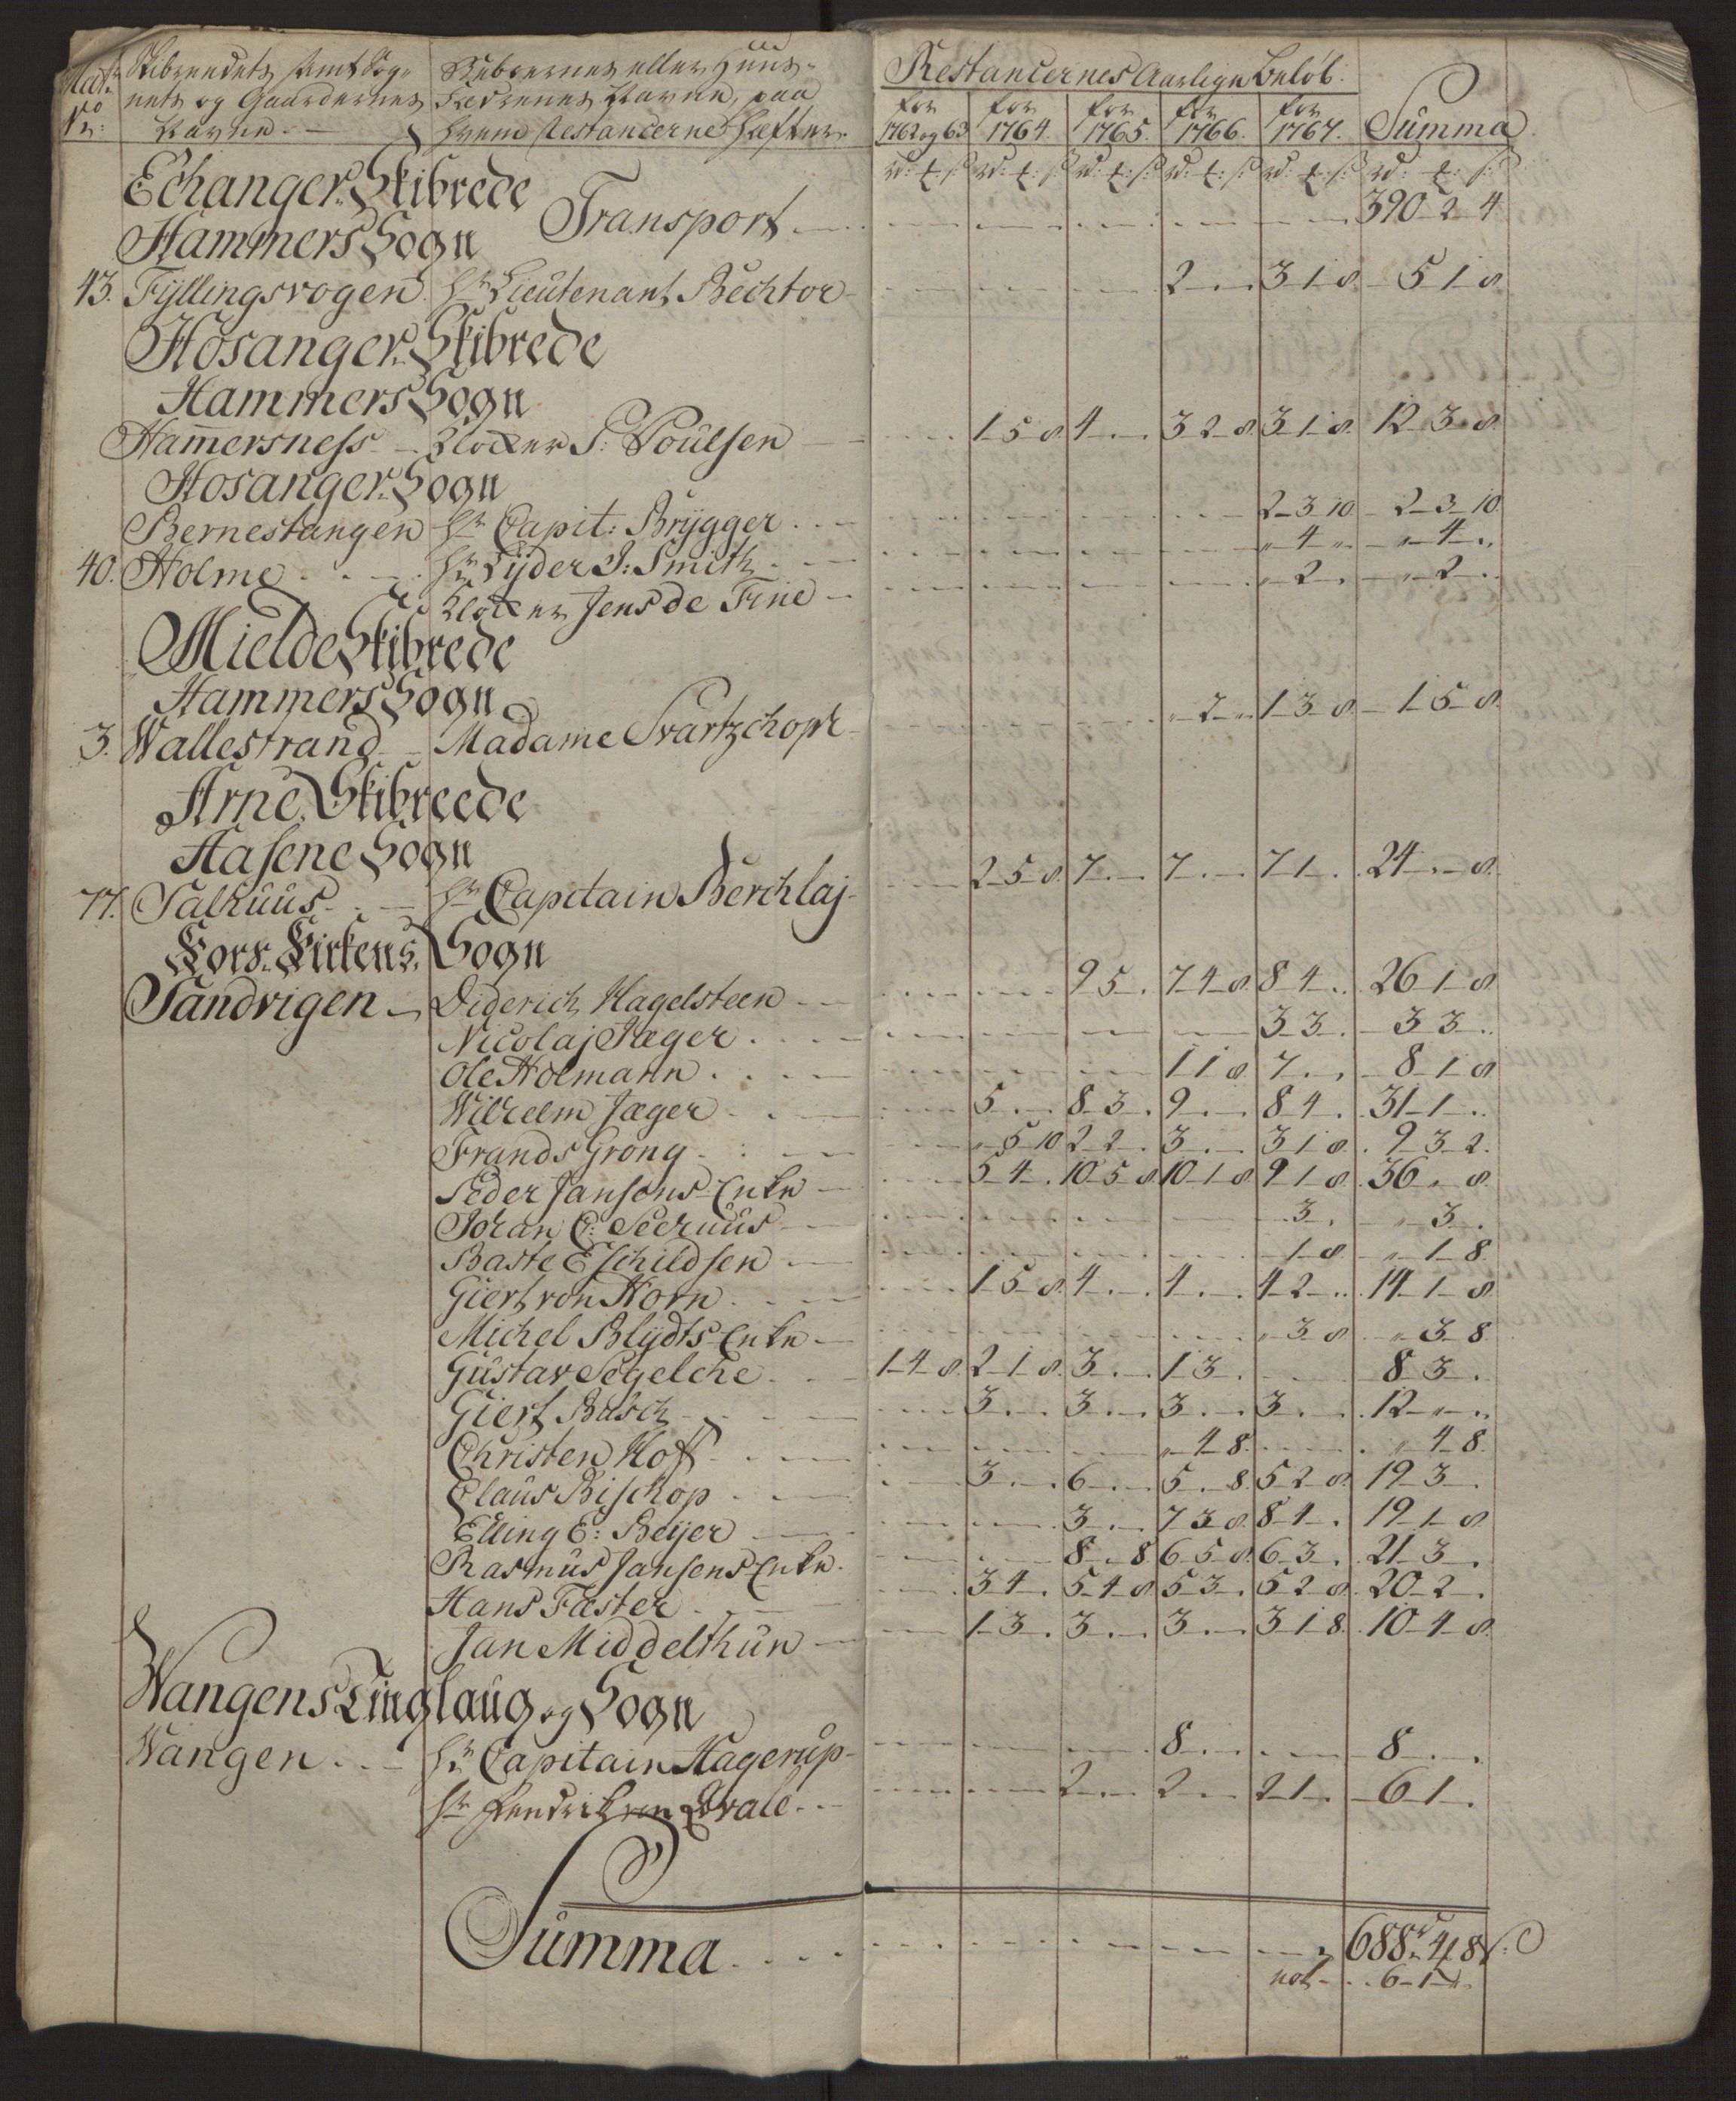 Mat: Skibreedets samt Sog- Beboernes eller Huus- Restancernes Aarlige Beløb.
No nets og Gaardernes Fædrenes Navne, paa for for for for for
Nr: Navne. hvem Restancerne hæfter. 1762 og 63 1764. 1765. 1766. 1767. Summa
rd: ʒ: ß rd: ʒ: ß rd: ʒ: ß rd: ʒ: ß rd: ʒ: ß rd: ʒ: ß
Echanger Skibrede
Transport 390 2 4
Hammers Sogn
43. Fÿllingsvogen Hr Lieutenant Bechtor 2 3 1 8 5 1 8
Hosanger Skibrede
Hammers Sogn
Hamersness Klocker P: Poulsen 1 5 8 4 3 2 8 3 1 8 12 3 8
Hosanger Sogn
Bernestangen Hr Capit: Brÿgger 2 3 10 2 3 10
40. Holme Hr Lÿder J: Smith " 4 " " 4 "
Klocker Jens de Fine " 2 " 2
Mielde Skibrede
Hammers Sogn
3. Wallestrand Madame Svartzchopf " 2 " 1 3 8 1 5 8
Arne Skibreede
Hasene Sogn
77. Salhuus Hr Capitain Berchlaj 2 5 8 7 7 7 1 24 " 8
Kors Kirkens Sogn
Sandvigen Diderich Hagelsteen 9 5 7 4 8 8 4 26 1 8
Nicolaj Jæger 3 3 3 3
Ole Holmann 1 1 8 7 8 1 8
Wilhelm Jæger 5 8 3 9 8 4 31 1
Frands Grong " 5 10 2 2 3 3 1 8 9 3 2
Peder Jansons Enke 5 4 10 5 8 10 1 8 9 1 8 36 " 8
Johan C: Seehuus 3 " 3
Baste Eschildsen 1 8 " 1 8
Giert von Horn 1 5 8 4 4 4 2 14 1 8
Michel Blÿdts Enke " 3 8 " 3 8
Gustav Segelche 1 4 8 2 1 8 3 1 3 8 3
Giert Busch 3 3 3 3 12 " "
Christen Hoff " 4 8 " 4 8
Claus Bischop 3 6 5 " 8 5 2 8 19 3
Elling E: Beÿer 3 7 3 8 8 4 19 1 8
Rasmus Jansens Enke 8 " 8 6 5 8 6 3 21 3
Hans Fæster 3 4 5 4 8 5 3 5 2 8 20 2
Jan Middelthun 1 3 3 3 3 1 8 10 4 8
Wangens Tinglaug og Sogn
Wangen Hr Capitain Hagerup 8 8
Hr Hendrik von Qvale 2 2 2 1 6 1
Summa 688 4 8
6 1